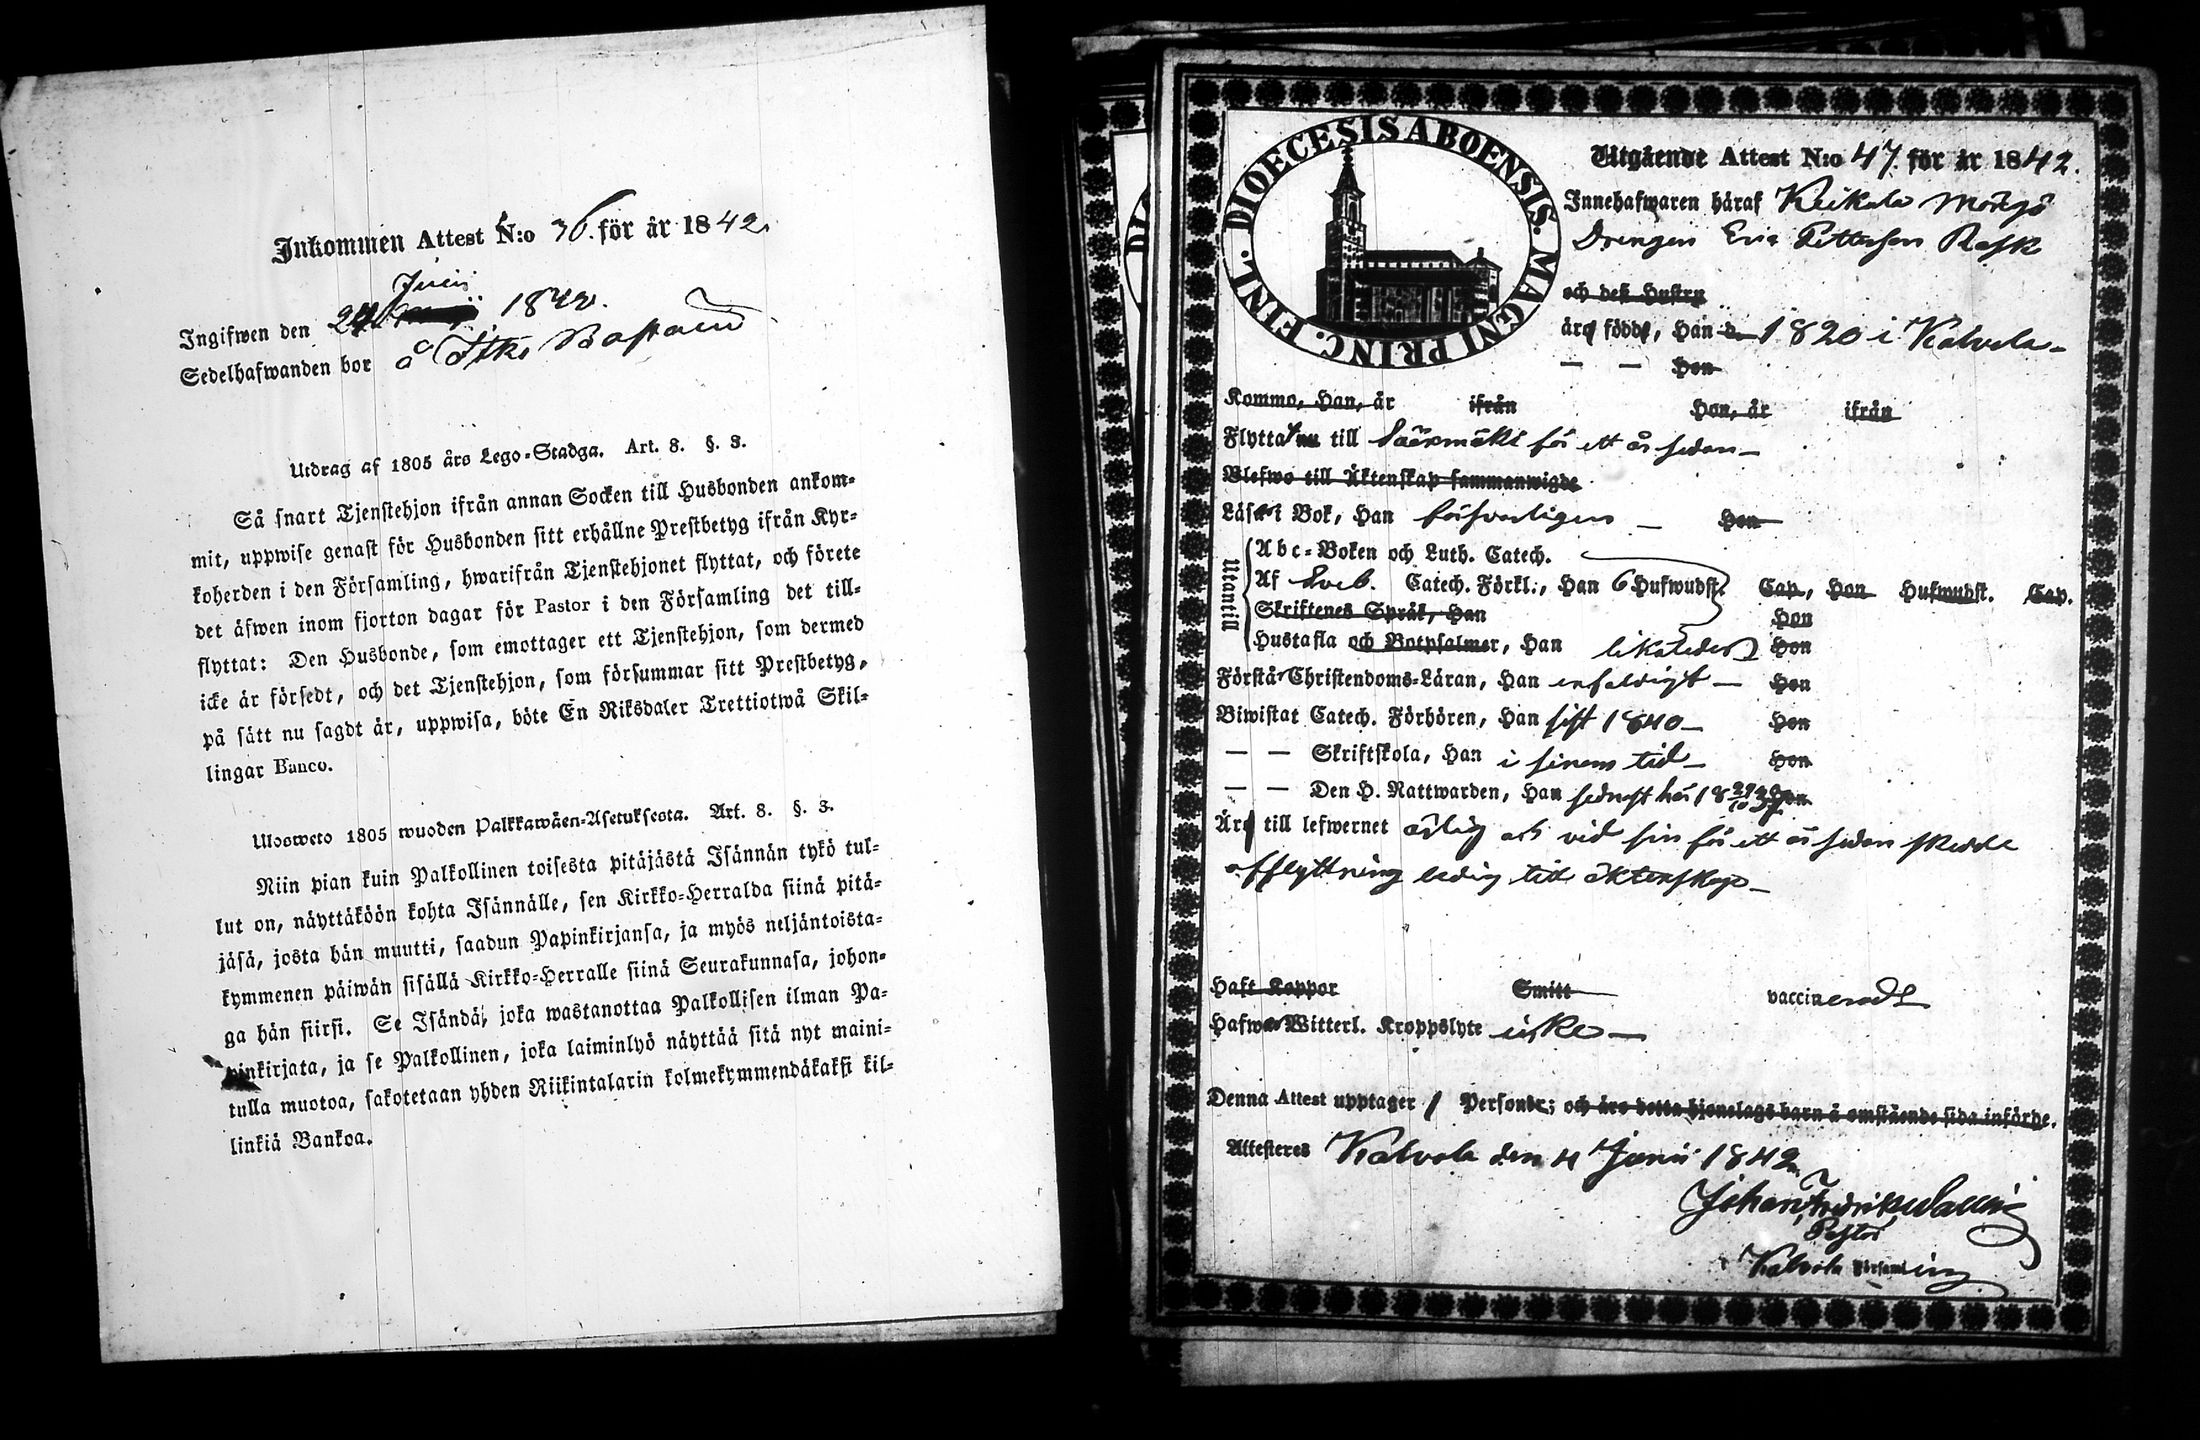 Inkommen Attest N:o 36. för år 1842.
Junii
Ingifwen den 24 1842.
Sedelhafwanden bor å Itko Bostaind
Utdrag af 1805 års Lego-Stadga. Art. 8. §. 3.
Så snart Tjenstehjon ifrån annan Socken till Husbonden ankom-
mit, uppwise genast för Husbonden sitt erhållne Prestbetyg ifrån Kyr-
koherden i den Församling, hwarifrån Tjenstehjonet flyttat, och förete
det äfwen inom fjorton dagar för Pastor i den Församling det till-
flyttat: Den Husbonde, som emottager ett Tjenstehjon, som dermed
icke är försedt, och det Tjenstehjon, som försummar sitt Prestbetyg,
på sätt nu sagdt är, uppwisa, böte En Riksdaler Trettiotwå Skil-
lingar Banco.
Ulosweto 1805 wuoden Palkkawäen-Asetuksesta. Art. 8. §. 3.
Niin pian kuin Palkollinen toisesta pitäjästä Isännän tykö tul-
lut on, näyttäköön kohta Isännälle, sen Kirkko-Herralda siinä pitä-
jäsä, josta hän muutti, saadun Papinkirjansa, ja myös neljäntoista-
kymmenen päiwän sisällä Kirkko-Herralle siinä Seurakunnasa, johon-
ga hän siirsi. Se Isändä, joka wastanottaa Palkollisen ilman Pa-
pinkirjata, ja se Palkollinen, joka laiminlyö näyttää sitä nyt maini-
tulla muotoa, sakotetaan yhden Riikintalarin kolmekymmendäkaksi kil-
linkiä Bankoa.
DIOECESIS ABOENSIS. MAGNI PRINC. FINL.
Utgående Attest N:o 47 för år 1842.
Innehafwaren häraf Keikala
Drengen Eric Pettersson Rask
och deß Hustru
äro födde, Han d 1820 i Kalvola
— — Hon
Kommo, Han, år ifrån Hon, år ifrån
Flytta nu till Sääxmäki för ett år sedan
Blefwo till Äktenskap sammanwigde
Läsa i Bok, Han försvarligen — Hon
Utantill
Abc-Boken och Luth. Catech.
Af Sveb. Catech. Förkl., Han 6 Hufwudst. Cap., Hon Hufwudst. Cap.
Skriftenes Språk, Han Hon
Hustafla och Botpsalmer, Han likaledes Hon
Förstå Christendoms-Läran, Han enfaldigt — Hon
Biwistat Catech. Förhören, Han sist 1840 — Hon
— — Skriftskola, Han i sinom tid — Hon
— — Den H. Nattwarden, Han sednast här 18 Hon
Äro till lefwernet ärlig och vid sin för ett år sedan skedde
afflyttning ledig till äktenskap —
Haft Koppor Smitt vaccinerad
Hafwa Witterl. Kroppslyte icke —
Denna Attest upptager 1 Personer; och äro detta hjonelags barn å omstående sida införde.
Attesteres Kalvola den 4 Junii 1842
Johan Fredrik Wallenius
Pastor
Kalvola Församling